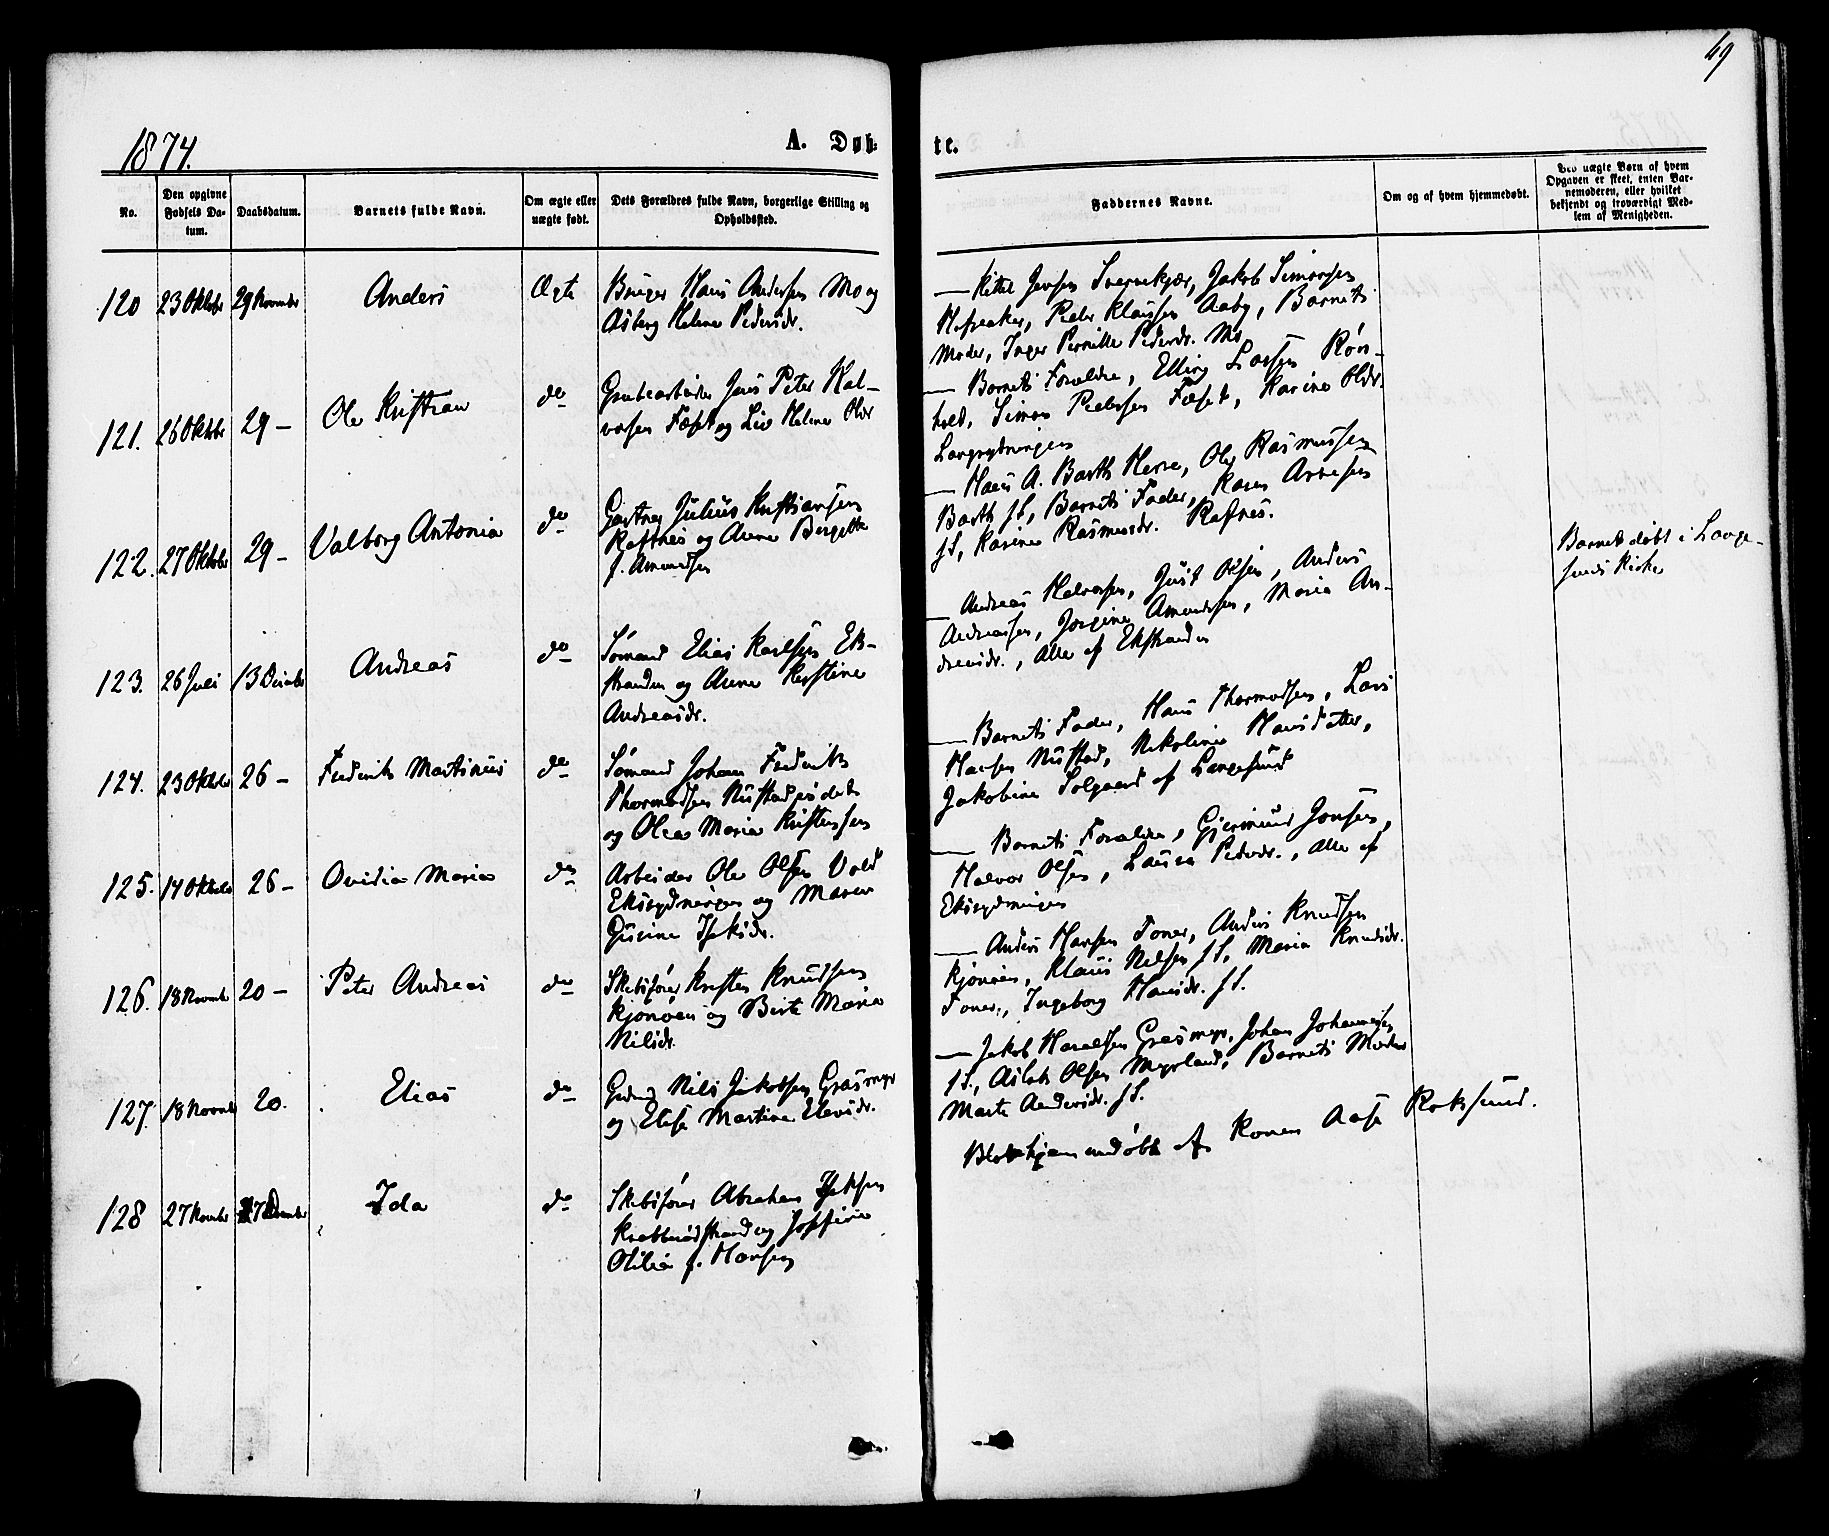 49
1874.
A. Døb-
te.
No.
Den opgivne
Fødsels Da-
tum.
Daabsdatum.
Barnets fulde Navn.
Om ægte eller
uægte født.
Dets Forældres fulde Navn, borgerlige Stilling og
Opholdssted.
Faddernes Navne.
Om og af hvem hjemmedøbt.
Ved uægte Børn af hvem
Opgaven er skeet, enten Bar-
nemoderen, eller hvilket
bekjendt og troværdigt Med-
lem af Menigheden.
120
23 Oktober
29 November
Anders
Ægte
Bruger Hans Andersen Mo og
Asborg Helene Pedersdr.
— Kittel Jensen Tvernekjær, Jakob Simonsen
Peder Klausen Aaby, Barnets
Moder, Inger Pernille Pedersdr. Mo
121.
26 Oktober
29 —
Ole Kristian
do
Grubearbeider Jens Peter Hal-
vorsen Fæset og Liv Helene Olsdr
— Barnets Forældre, Elling Larsen Røn-
hold, Simon Pedersen Fæset, Karine Olsdr.
Langrydningen
122.
27 Oktober
29 —
Valborg Antonia
do
Gartner Julius Kristiansen
Rafnes og Anne Bergette
f. Amundsen
— Hans A. Barth Herre, Ole Rasmussen
Barth sS., Barnets Fader, Karen Arnesen
sS., Karine Rasmusdr. Rafnes.
Barnet døbt i Lange-
sunds Kirke
123.
26 Juli
13 December
Andreas
do
Sømand Elias Karlsen Ek-
stranden og Anne Kirstine
Andreasdr.
— Andreas Halvorsen, Just Olsen, Anders
Andreassen, Jorgine Amundsen, Maria An-
dreasdr., Alle af Ekstranden
124.
23 Oktober
26 —
Frederik Martinius
do
Sømand Johan Frederik
Thormodsen Nustadjordet
og Olea Maria Kristensen
— Barnets Fader, Hans Thormodsen, Lars
Hansen Nustad, Nikoline Hansdatter,
Jakobine Solgaard af Langesund
125.
14 Oktober
26 —
Ovidia Maria
do
Arbeider Ole Olsen Vold
Eksrydningen og Maren
Gurine Isaksdr.
— Barnets Forældre, Gjermund Jonsen,
Halvor Olsen, Laura Pedersdr., Alle af
Eksrydningen
126.
18 Novembr
20 —
Peter Andreas
do
Skibsfører Kristen Knudsen
Kjønøen og Berte Maria
Nilsdr.
— Anders Hansen Toner, Anders Knudsen
Kjønøen, Klaus Nilsen sS., Maria Knudsdr.
Toner, Ingeborg Hansdr. sS.
127.
18 Novembr
20.
Elias
do
Nils Jakobsen Grasmyr
og Elise Martine Elevsdr.
— Jakob Haraldsen Grasmyr, Johan Johannesen
sS., Aslak Olsen Myrland, Barnets Moder
Marte Andersdr. sS.
128
27 Novembr
27 December
Ida
do
Skibsfører Abraham Isaksen
Krabberødstrand og Josefine
Otilia f. Hansen
Blev hjemmedøbt af Konen Aase Roksund.